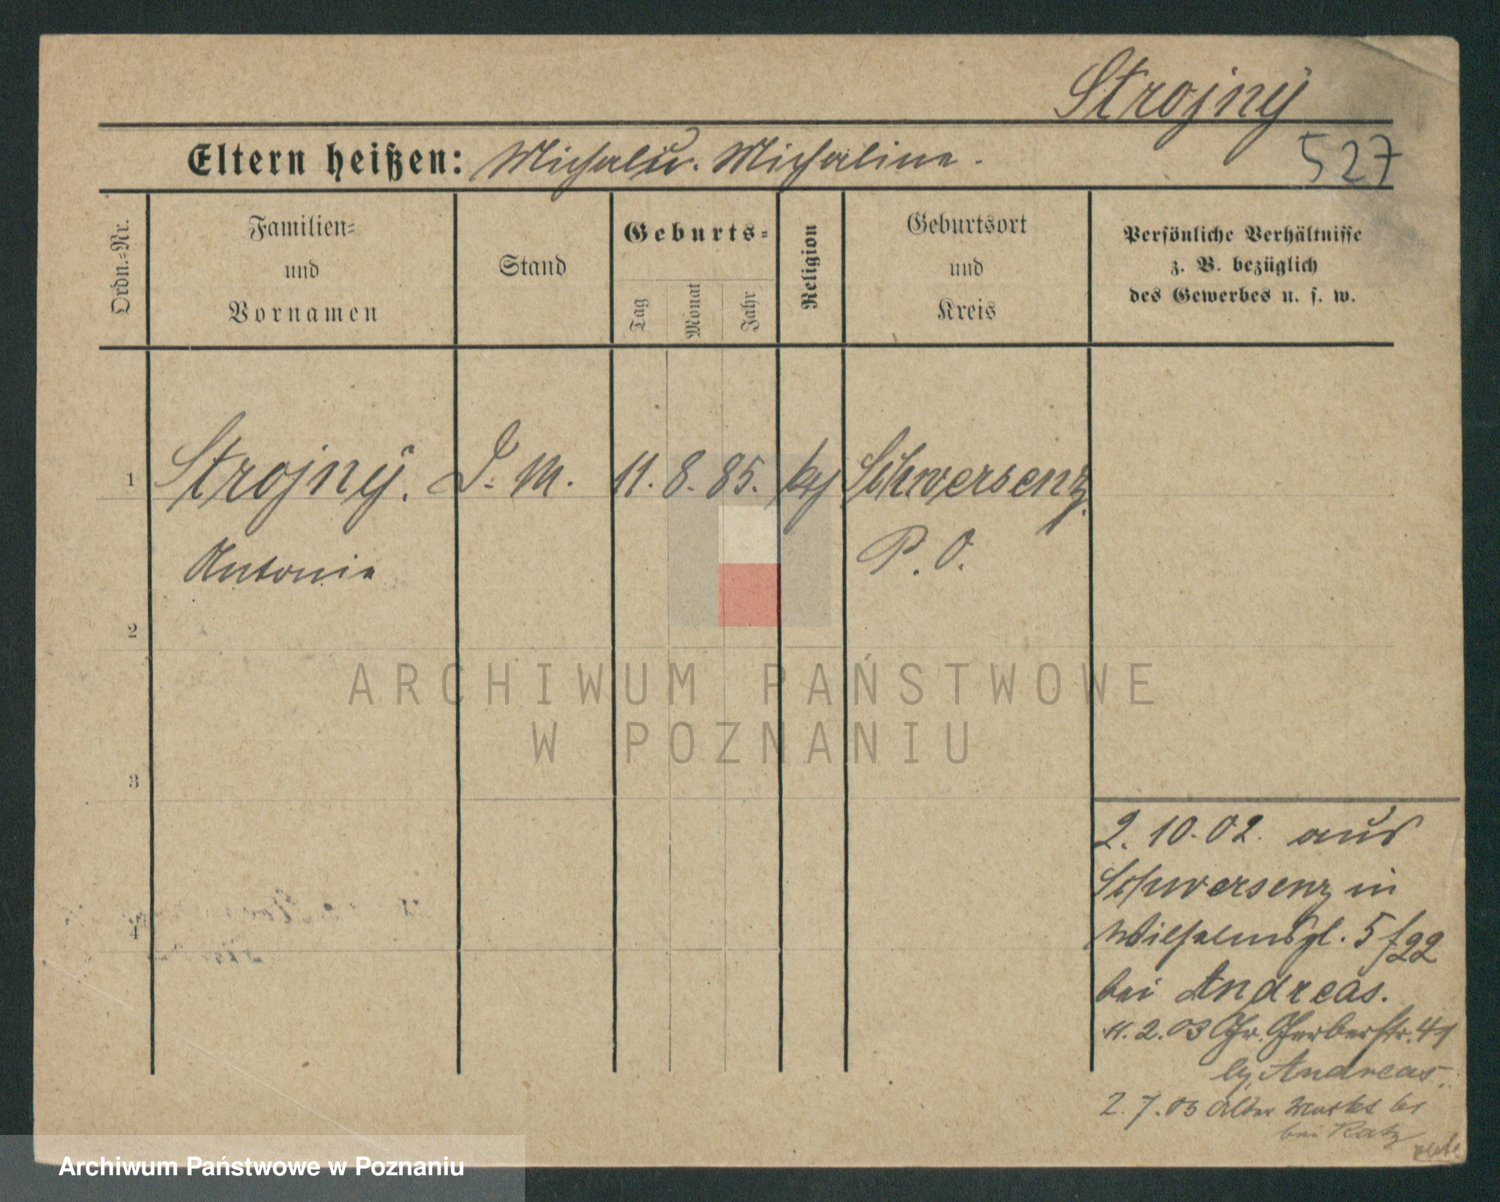 Strojný
Eltern heißen: Michal u. Michaline.
527
Ordn.-Nr.
Familien-
und
Vornamen
Stand
Geburts-
Tag
Monat
Jahr
Religion
Geburtsort
und
Kreis
Persönliche Verhältnisse
z. B. bezüglich
des Gewerbes u. s. w.
1
Strojný. D. M. 11. 8. 85. Schwersenz.
Antonie
P. O.
2
ARCHIWUM PAŃSTWOWE
W POZNANIU
3
4
2. 10. 02. aus
Schwersenz in
Wilhelmspl. 5
bei Andreas.
11. 2. 03 Gr. Gerberstr. 41
Andreas.
2. 7. 03 Alter Markt
bei Ratz
Archiwum Państwowe w Poznaniu